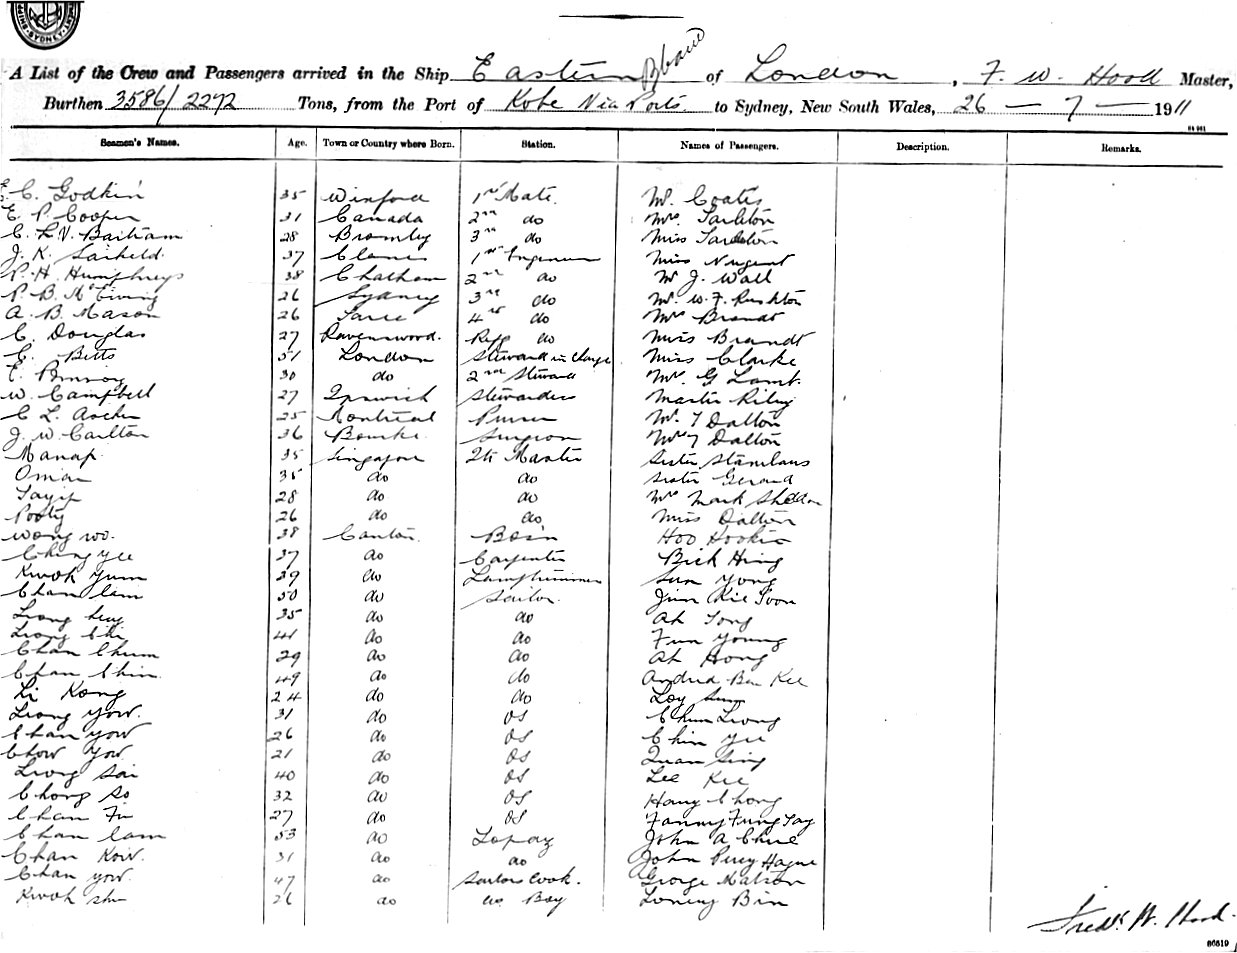 SYDNEY
A List of the Crew and Passengers arrived in the Ship Eastern of London, F. W. Hood Master,
Burthen 3586/2272 Tons, from the Port of Kobe Via Ports to Sydney, New South Wales, 26 — 7 — 1911
Seamen's Names. Age. Town or Country where Born. Station. Names of Passengers. Description. Remarks.
E. C. Godkin 35 Winford 1st Mate. Mr. Coates
E. P. Cooper 31 Canada 2nd do Mrs Tarleton
C. L. V. Bartram 28 Bromley 3rd do Miss Tarleton
J. K. 37 1st Engineer Miss Nugent
P. H. Humphreys 38 Chatham 2nd do Mr J. Wall
P. B. 26 Sydney 3rd do Mr. W. F. Rushton
A. B. Mason 26 Taree 4th do Mrs Brandt
C. Douglas 27 Ravenswood. Refg do Miss Brandt
C. Betts 51 London Steward in Charge Miss Clarke
E. 30 do 2nd Steward Mr. G Lamb.
W. Campbell 27 Ipswich Stewardess Master Riley
C L. Archer 25 Montreal Purser Mr. T Dalton
J. W. Carlton 36 Bourke Surgeon Mrs T Dalton
Manap 35 Singapore Qtr Master Sister Stanilaus
Omar 35 do do Sister Gerard
Tayip 28 do do Mrs Mark Sheldon
Pooty 26 do do Miss Dalton
Wong Wo. 38 Canton. Bos'n Hoo Hookie
Ching Yee 37 do Carpenter Bick Hing
Kwok Yum 39 do Lamptrimmer Sun Yong
Chan Lam 50 do Sailor Jim Kie Soon
Leong 35 do do Ah Tong
Leong Chi 41 do do Fun Young
Chan Chum 29 do do Ah Hong
Chan Chin 49 do do Andrew Ben Kee
Li Kong 24 do do Loy Sum
Leong Yow. 31 do OS Chun Leong
Chan Yow 26 do OS Chin Yee
Chow Yow 21 do OS Quan Sing
Leong Sai 40 do OS Lee Kee
Chong So 32 do OS Hang Chong
Chan Fu 27 do OS Fanny Fung Say
Chan Lam 53 do Topaz John A Chue
Chan Kow. 31 do do John Percy Hague
Chan Yow. 47 do Sailors Cook. George Matson
Kwok 26 do do Boy Bin
Fredk W. Hood.
86519